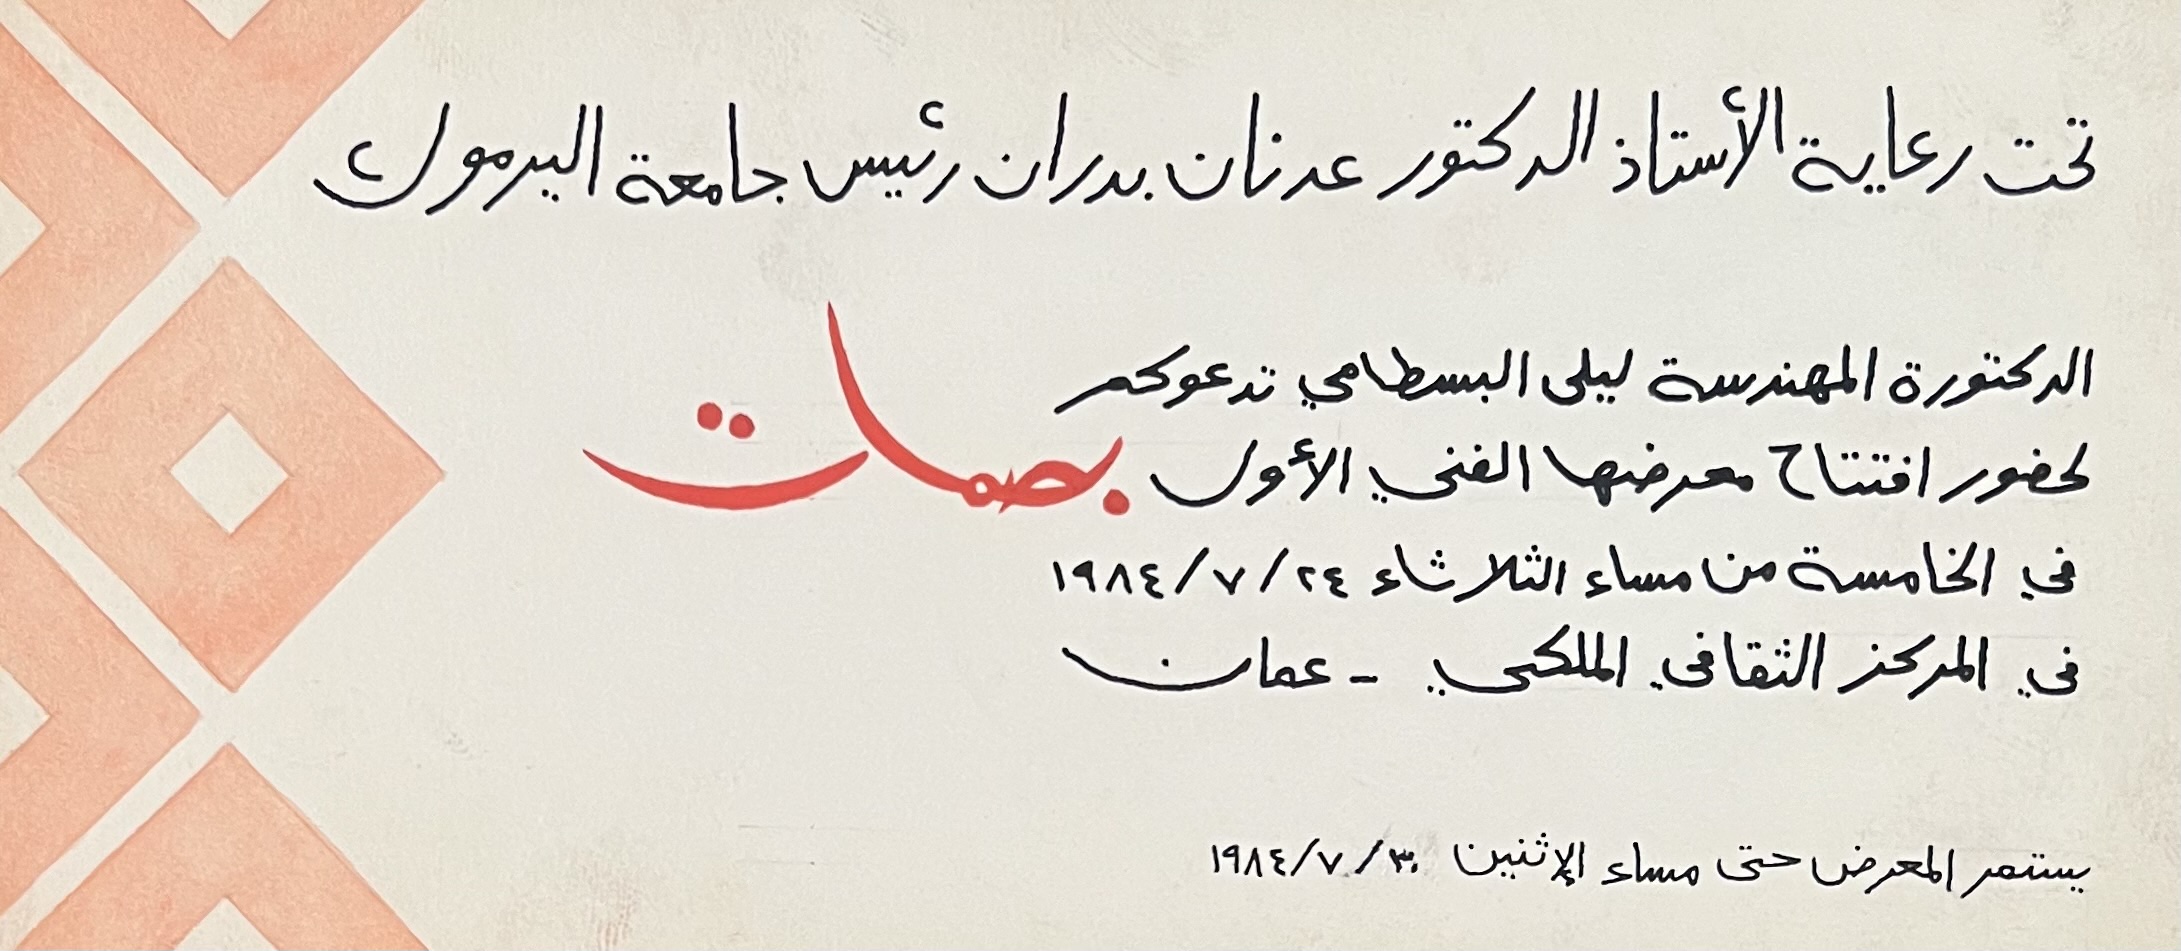 تحت رعاية الأستاذ الدكتور عدنان بدران رئيس جامعة اليرموك
الدكتورة المهندسة ليلى البسطامي تدعوكم
لحضور افتتاح معرضها الفني الأول بصمات
في الخامسة من مساء الثلاثاء ٢٤/٧/١٩٨٤
في المركز الثقافي الملكي - عمان
يستمر المعرض حتى مساء الإثنين ٣٠/٧/١٩٨٤